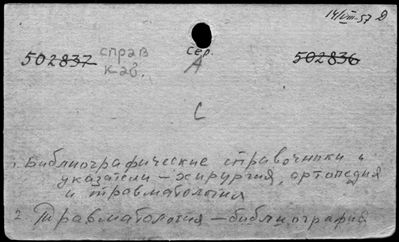 14/VIII-57
502837 справ каб. сер. А 502836
С
1. Библиографические справочники и
указатели – хирургия, ортопедия
и травматология
2. Травматология – библиография